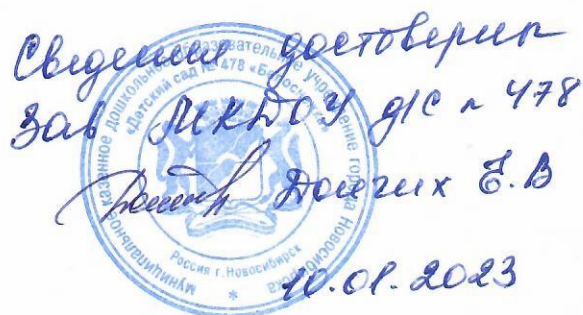 Сведения достоверны
Зав МКДОУ д/с № 478
Долгих Е.В
10.01.2023
муниципальное казенное дошкольное образовательное учреждение города Новосибирска
«Детский сад № 478
Россия г. Новосибирск